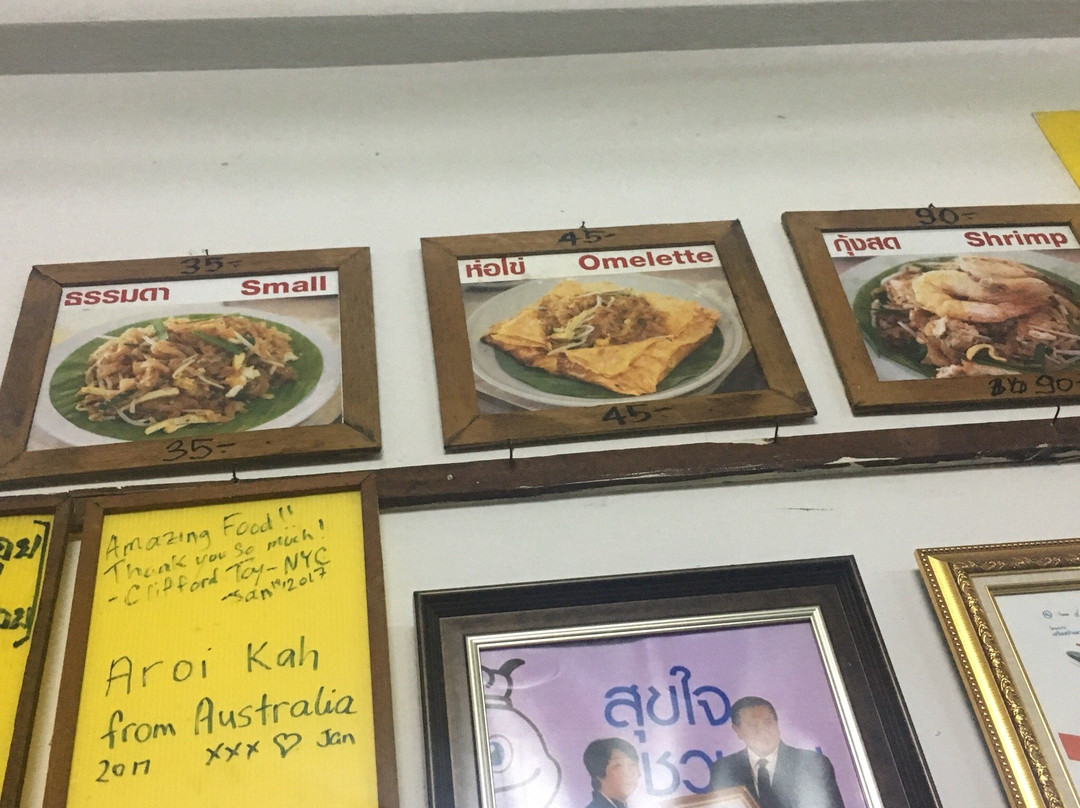 35-
ธรรมดา Small
35-
45-
ห่อไข่ Omelette
45-
90-
กุ้งสด Shrimp
90-
Amazing Food!!
Thank you so much!
- Clifford Toy - NYC
Jan 2017
Aroi Kah
from Australia
xxx ♡ Jan
2017
สุขใจ
ชว